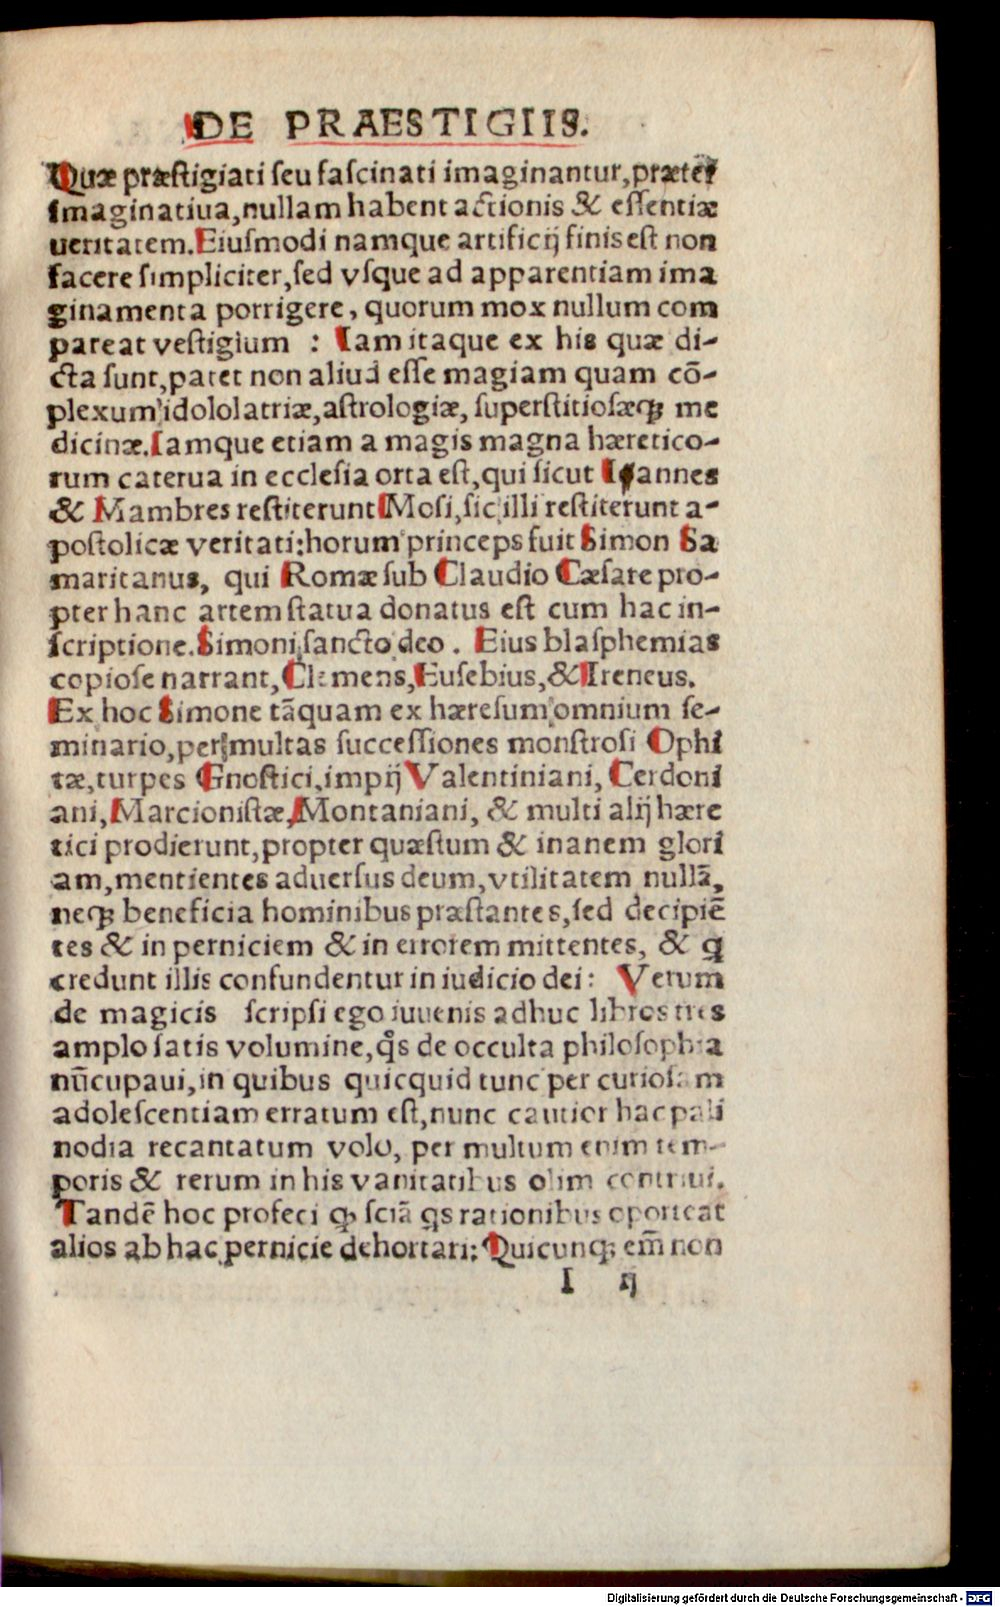 DE PRAESTIGIIS.
Quæ præstigiati seu fascinati imaginantur, præter
imaginatiua, nullam habent actionis & essentiæ
ueritatem. Eiusmodi namque artificij finis est non
facere simpliciter, sed vsque ad apparentiam ima
ginamenta porrigere, quorum mox nullum com
pareat vestigium : Iam itaque ex his quæ di-
cta sunt, patet non aliud esse magiam quam cō-
plexum idololatriæ, astrologiæ, superstitiosæqȝ me
dicinæ. Iamque etiam a magis magna hæretico-
rum caterua in ecclesia orta est, qui sicut Ioannes
& Mambres restiterunt Mosi, sic illi restiterunt a-
postolicæ veritati: horum princeps fuit Simon Sa
maritanus, qui Romæ sub Claudio Cæsare pro-
pter hanc artem statua donatus est cum hac in-
scriptione. Simoni sancto deo . Eius blasphemias
copiose narrant, Clemens, Eusebius, & Ireneus.
Ex hoc Simone tāquam ex hæresum omnium se-
minario, per multas successiones monstrosi Ophi
tæ, turpes Gnostici, impij Valentiniani, Cerdoni
ani, Marcionistæ, Montaniani, & multi alij hære
tici prodierunt, propter quæstum & inanem glori
am, mentientes aduersus deum, vtilitatem nullā,
neqȝ beneficia hominibus præstantes, sed decipiē
tes & in perniciem & in errorem mittentes, & q
credunt illis confundentur in iudicio dei: Verum
de magicis scripsi ego iuuenis adhuc libros tres
amplo satis volumine, qͦs de occulta philosophia
nūcupaui, in quibus quicquid tunc per curiosam
adolescentiam erratum est, nunc cautior hac pali
nodia recantatum volo, per multum enim tem-
poris & rerum in his vanitatibus olim contriui.
Tandē hoc profeci qȝ sciā qs rationibus oporteat
alios ab hac pernicie dehortari: Quicunqȝ em̄ non
I ij
Digitalisierung gefördert durch die Deutsche Forschungsgemeinschaft - DFG